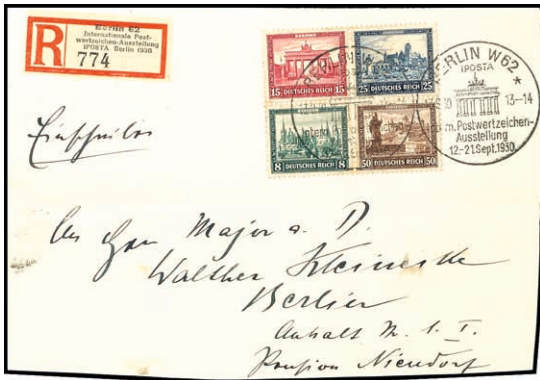 Berlin 62
Internationale Post-
wertzeichen-Ausstellung
IPOSTA Berlin 1930
R
774
15 DEUTSCHES REICH 15
25 DEUTSCHES REICH 25
8 DEUTSCHES REICH 8
50 DEUTSCHES REICH 50
BERLIN W62
IPOSTA
13-14
Postwertzeichen-
Ausstellung
12-21.Sept.1930.
Einschreiben
An Herrn Major a. D.
Walther
Berlin
Anhalt
Pension Niendorf